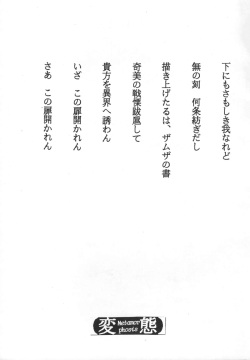 下にもさもしき我なれど
無の刻　何条紡ぎだし
描き上げたるは、ザムザの書
奇美の戦慄跋扈して
貴方を異界へ誘わん
いざ　この扉開かれん
さあ　この扉開かれん
変態
Metamor
phosis